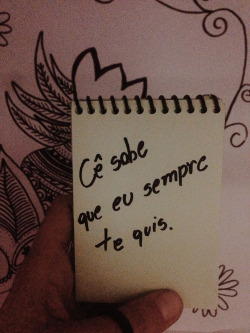 Cê sabe
que eu sempre
te quis.